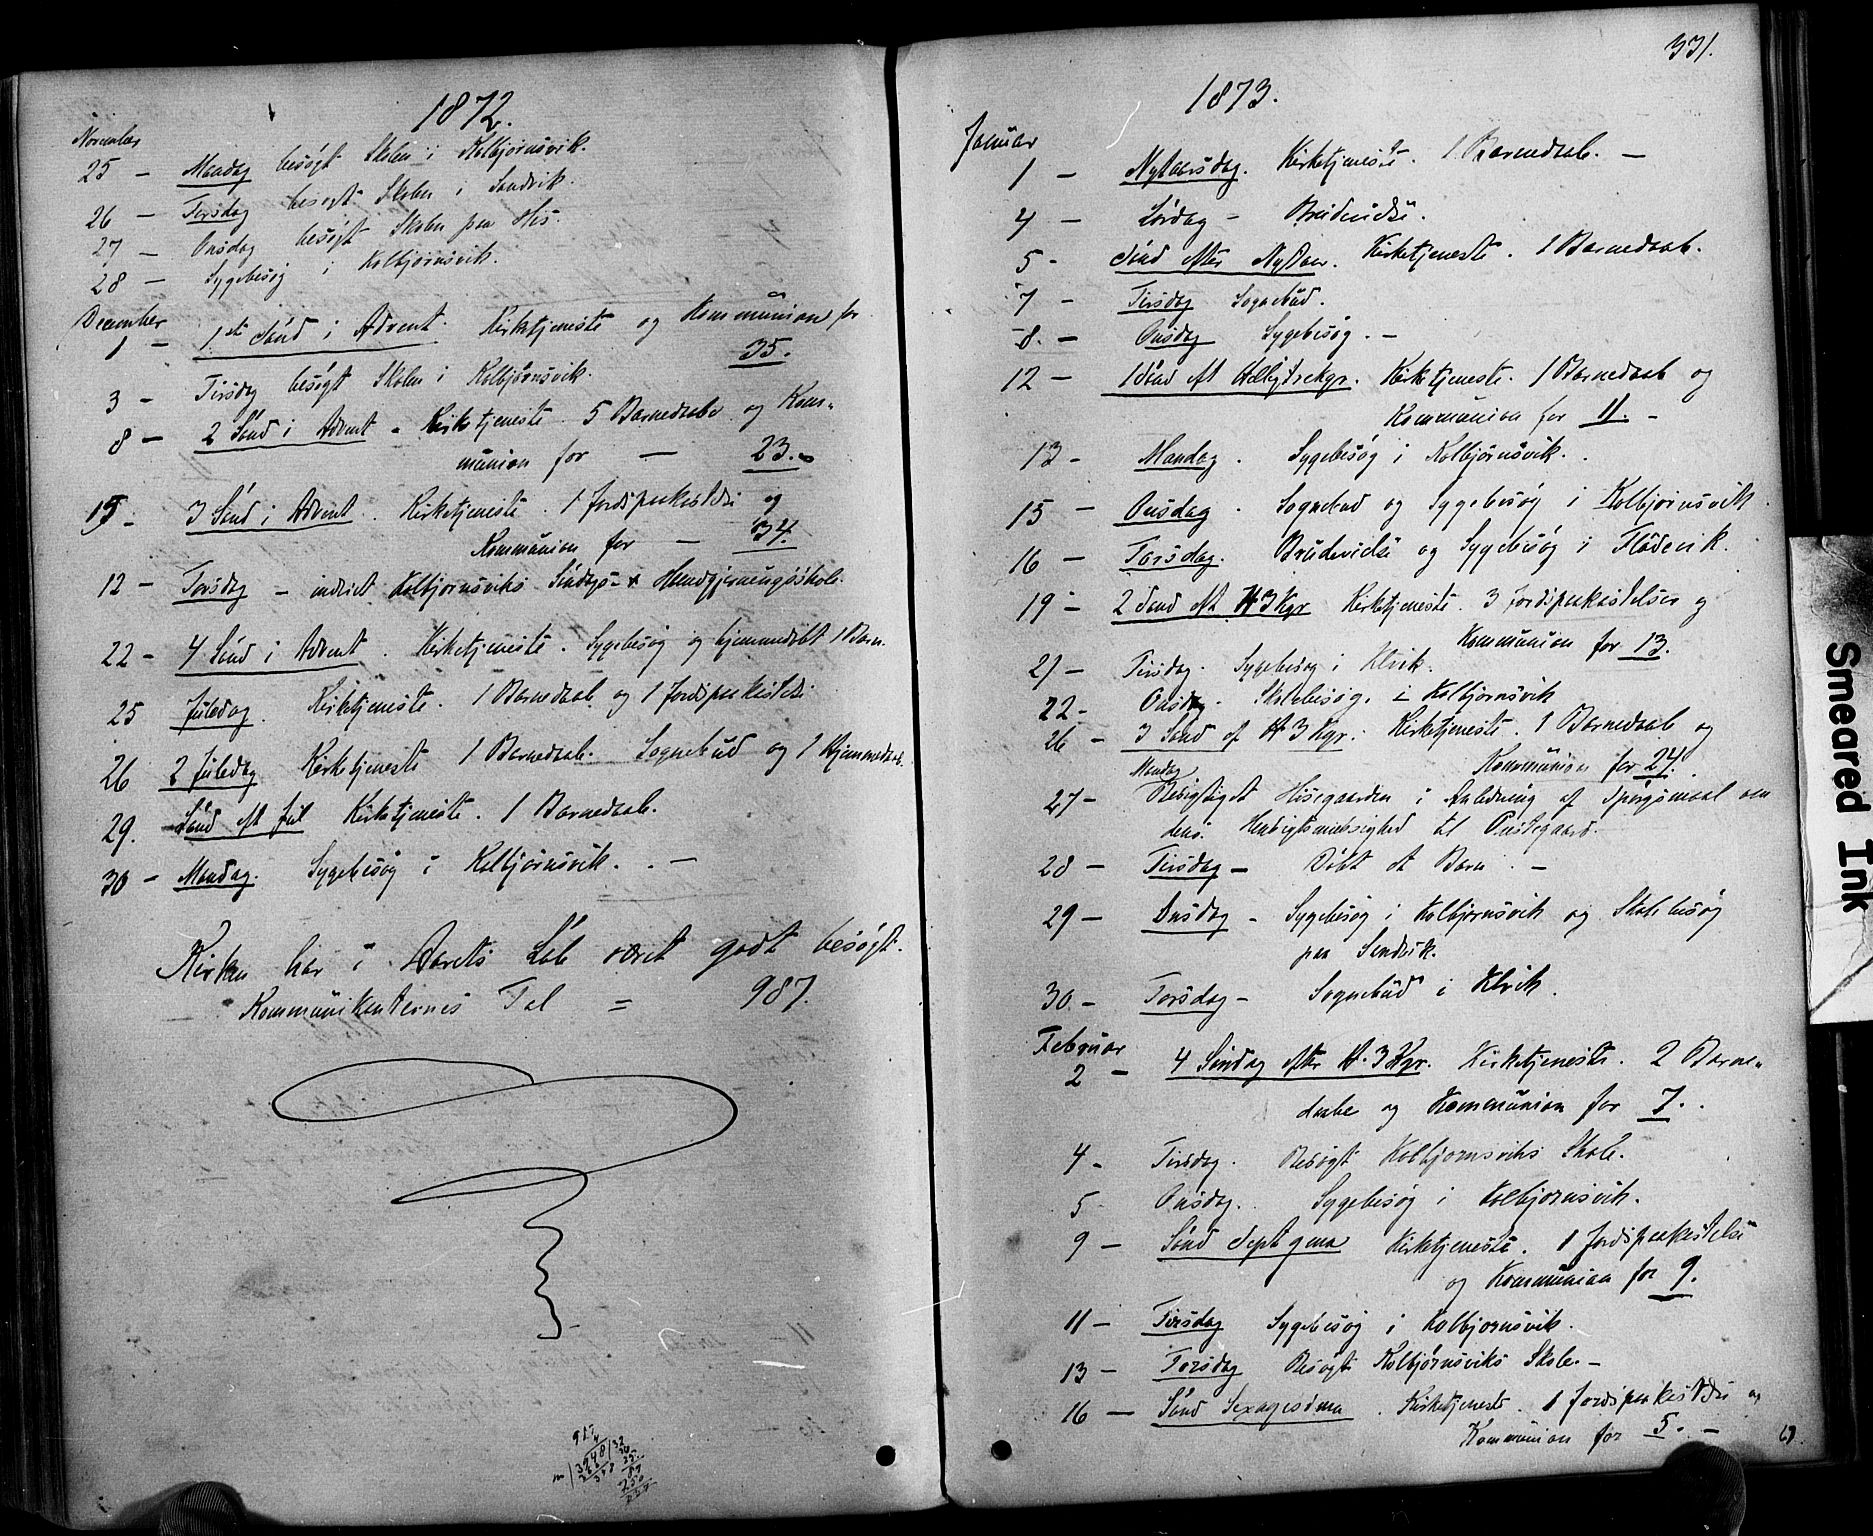 1872.
November
25 — Mandag besøgt Skolen i Kolbjørnsvik.
26 — Tirsdag besøgt Skolen i Sandvik.
27 — Onsdag besøgt Skolen paa His.
28 — Sygebesøg i Kolbjørnsvik.
December
1 — 1ste Sønd i Advent. Kirketjeneste og Kommunion for
35.
3 — Tirsdag besøgt Skolen i Kolbjørnsvik.
8 — 2 Sønd i Advent. Kirketjeneste. 5 Barnedaabe og Kom-
munion for — 23.
15 — 3 Sønd i Advent. Kirketjeneste. 1 Jordspaakastelse og
Kommunion for — 34.
12 — Torsdag — indviet Kolbjørnsviks Søndags- & Haandgjerningsskole.
22 — 4 Sønd i Advent. Kirketjeneste. Sygebesøg og hjemmedøbt 1 Barn.
25 Juledag. Kirketjeneste. 1 Barnedaab og 1 Jordspaakastelse.
26 2 Juledag Kirketjeneste 1 Barnedaab. Sognebud og 1 Hjemmedaab.
29. Sønd eft Jul Kirketjeneste. 1 Barnedaab.
30 — Mandag. Sygebesøg i Kolbjørnsvik. —
Kirken har i Aarets Løb været godt besøgt.
Kommunikanternes Tal = 987.
331.
1873.
Januar
1 — Nytaarsdag. Kirketjeneste. 1 Barnedaab. —
4 — Lørdag — Brudevielse.
5 — Sønd efter Nytaar. Kirketjeneste. 1 Barnedaab.
7 — Tirsdag Sognebud.
8. — Onsdag Sygebesøg. —
12 — 1 Sønd eft Helligtrekgr. Kirketjeneste. 1 Barnedaab og
Kommunion for 11. —
13 — Mandag. Sygebesøg i Kolbjørnsvik.
15 — Onsdag. Sognebud og Sygebesøg i Kolbjørnsvik.
16 — Torsdag. Brudevielse og Sygebesøg i Flødevik.
19 — 2 Sønd eft H3Kgr Kirketjeneste. 3 Jordspaakastelser og
Kommunion for 13.
21 — Tirsdag. Sygebesøg i Klvik.
22 — Onsdag. Skolebesøg. i Kolbjørnsvik
26 — 3 Sønd ef H3Kgr. Kirketjeneste. 1 Barnedaab og
Kommunion for 24.
Mandag
27 — Besigtiget Hisegaarden i Anledning af Spørgsmaal om
dens Hensigtsmæssighed til Enkegaard.
28 — Tirsdag — Døbt et Barn. —
29 — Onsdag — Sygebesøg i Kolbjørnsvik og Skolebesøg
paa Sandvik.
30. — Torsdag — Sognebud i Klvik.
Februar
2 — 4 Søndag efter H.3Kgr. Kirketjeneste. 2 Barne-
daabe og Kommunion for 7.
4 — Tirsdag. Besøgt Kolbjørnsviks Skole.
5 Onsdag. Sygebesøg i Kolbjørnsvik.
9 — Sønd Septagma Kirketjeneste. 1 Jordspaakastelse
og Kommunion for 9.
11 — Tirsdag Sygebesøg i Kolbjørnsvik.
13 — Torsdag Besøgt Kolbjørnsviks Skole. —
16 — Sønd Sexagesima. Kirketjeneste. 1 Jordspaakastelse og
Kommunion for 5. —
Smeared Ink